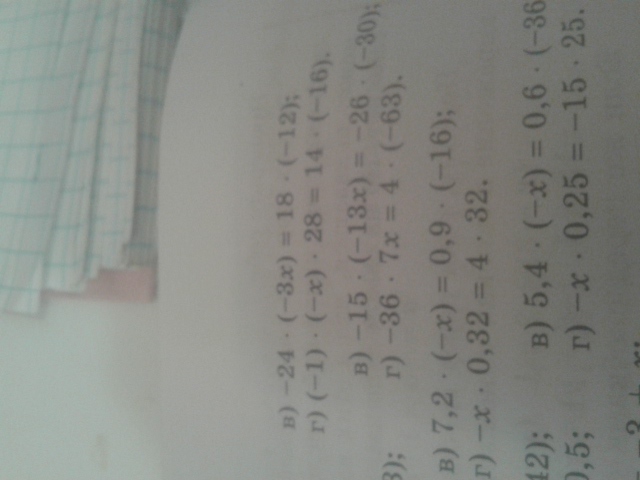 в) −24 · (−3x) = 18 · (−12);
г) (−1) · (−x) · 28 = 14 · (−16).
в) −15 · (−13x) = −26 · (−30);
3); г) −36 · 7x = 4 · (−63).
в) 7,2 · (−x) = 0,9 · (−16);
г) −x · 0,32 = 4 · 32.
42); в) 5,4 · (−x) = 0,6 · (−36
0,5; г) −x · 0,25 = −15 · 25.
−3 + x;